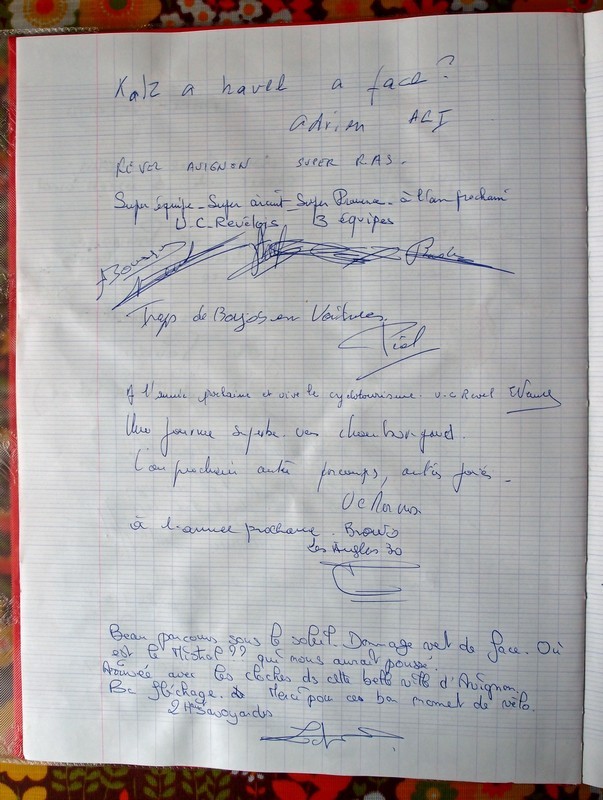 Kalz a havel a face?
Adrien
REVEL AVIGNON SUPER RAS.
Super équipe - Super circuit - Super Provence - à l'an prochain
U.C. Revélois 3 équipes
Trops de Bojos en Voitures.
A l'année prochaine et vive le cyclotourisme. U.C Revel
Une journée superbe
L'an prochain autre parcours, autres
à l'année prochaine.
Les Angles 30
Beau parcours sous le soleil. Dommage vet de face. Où
est le Mistral ?? qui nous aurait poussé.
Arrivée avec les cloches ds cette belle ville d'Avignon.
Bo fléchage. Merci pour ces bon momet de vélo.
2 Savoyardes